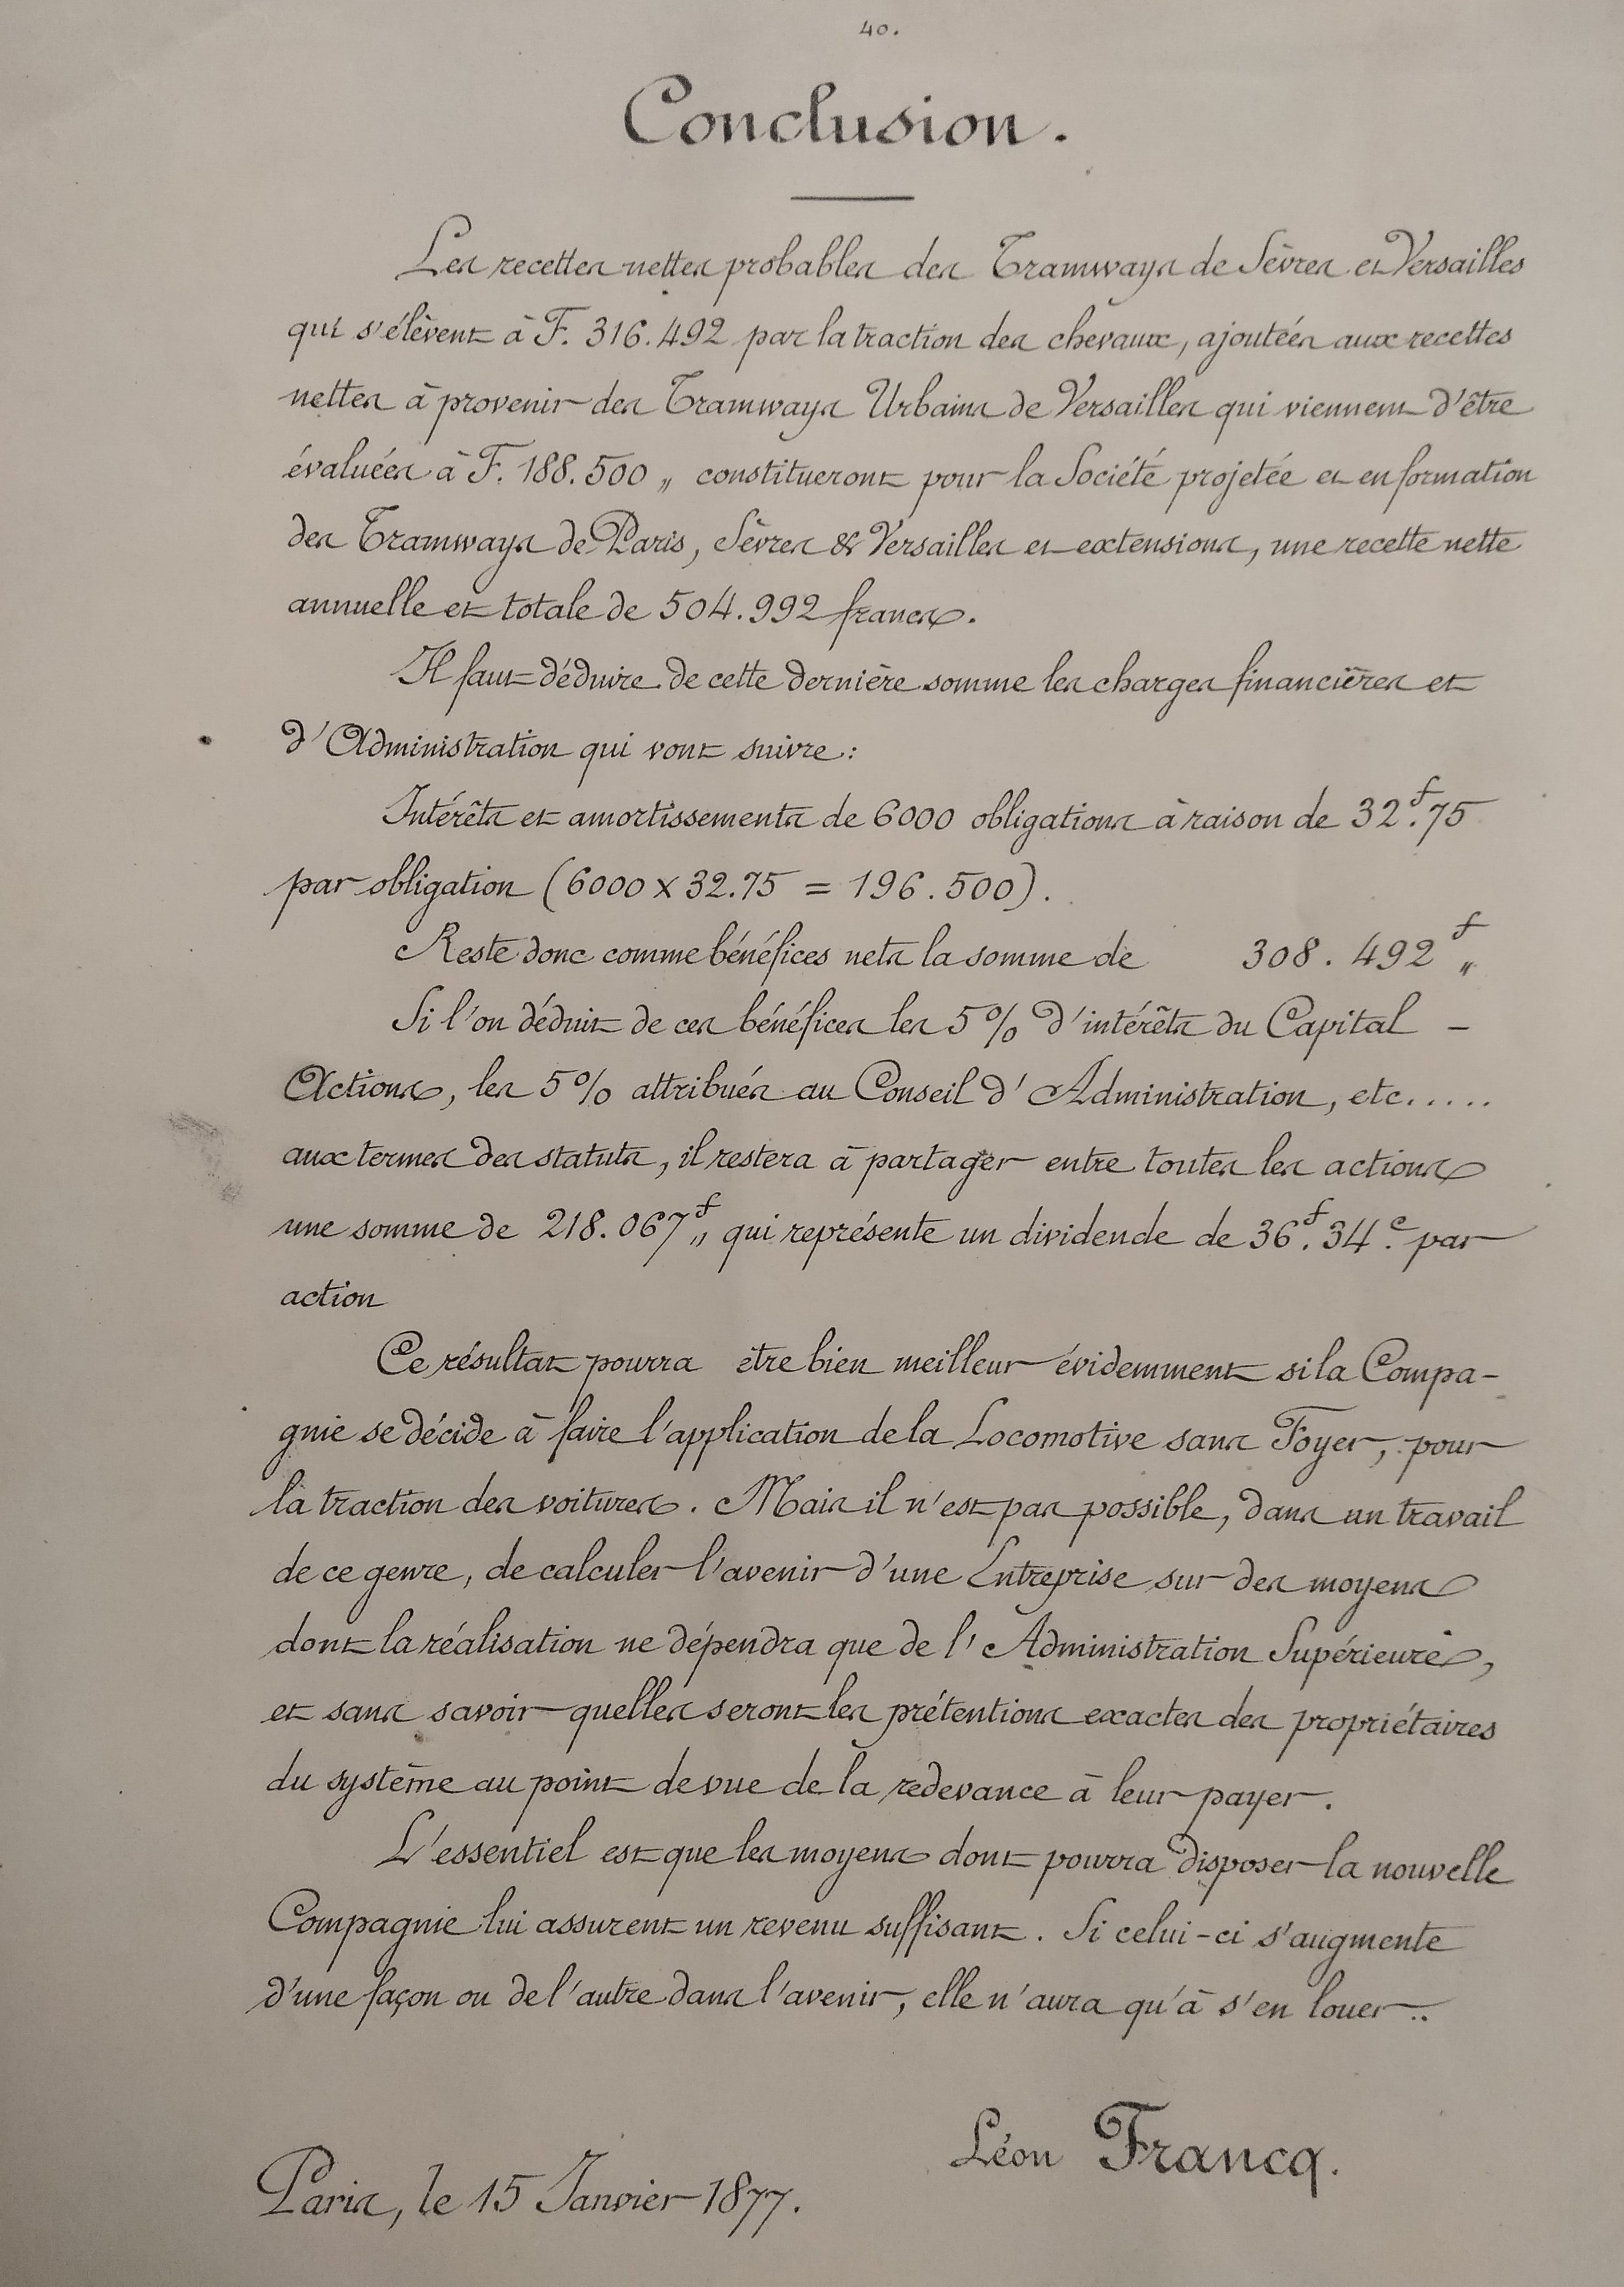 40.
Conclusion.
Les recettes nettes probables des Tramways de Sèvres et Versailles
qui s'élèvent à F. 316.492 par la traction des chevaux, ajoutées aux recettes
nettes à provenir des Tramways Urbains de Versailles qui viennent d'être
évaluées à F. 188.500 „ constitueront pour la Société projetée et en formation
des Tramways de Paris, Sèvres & Versailles et extensions, une recette nette
annuelle et totale de 504.992 francs.
Il faut déduire de cette dernière somme les charges financières et
d'Administration qui vont suivre :
Intérêts et amortissements de 6000 obligations à raison de 32.f 75
par obligation (6000 x 32.75 = 196.500).
Reste donc comme bénéfices nets la somme de 308.492 f „
Si l'on déduit de ces bénéfices les 5 % d'intérêts du Capital -
Actions, les 5 % attribués au Conseil d'Administration, etc.....
aux termes des statuts, il restera à partager entre toutes les actions
une somme de 218.067 f „ qui représente un dividende de 36.f 34.c par
action
Ce résultat pourra être bien meilleur évidemment si la Compa-
gnie se décide à faire l'application de la Locomotive sans Foyer, pour
la traction des voitures. Mais il n'est pas possible, dans un travail
de ce genre, de calculer l'avenir d'une Entreprise sur des moyens
dont la réalisation ne dépendra que de l'Administration Supérieure,
et sans savoir quelles seront les prétentions exactes des propriétaires
du système au point de vue de la redevance à leur payer.
L'essentiel est que les moyens dont pourra disposer la nouvelle
Compagnie lui assurent un revenu suffisant. Si celui-ci s'augmente
d'une façon ou de l'autre dans l'avenir, elle n'aura qu'à s'en louer..
Léon Francq.
Paris, le 15 Janvier 1877.